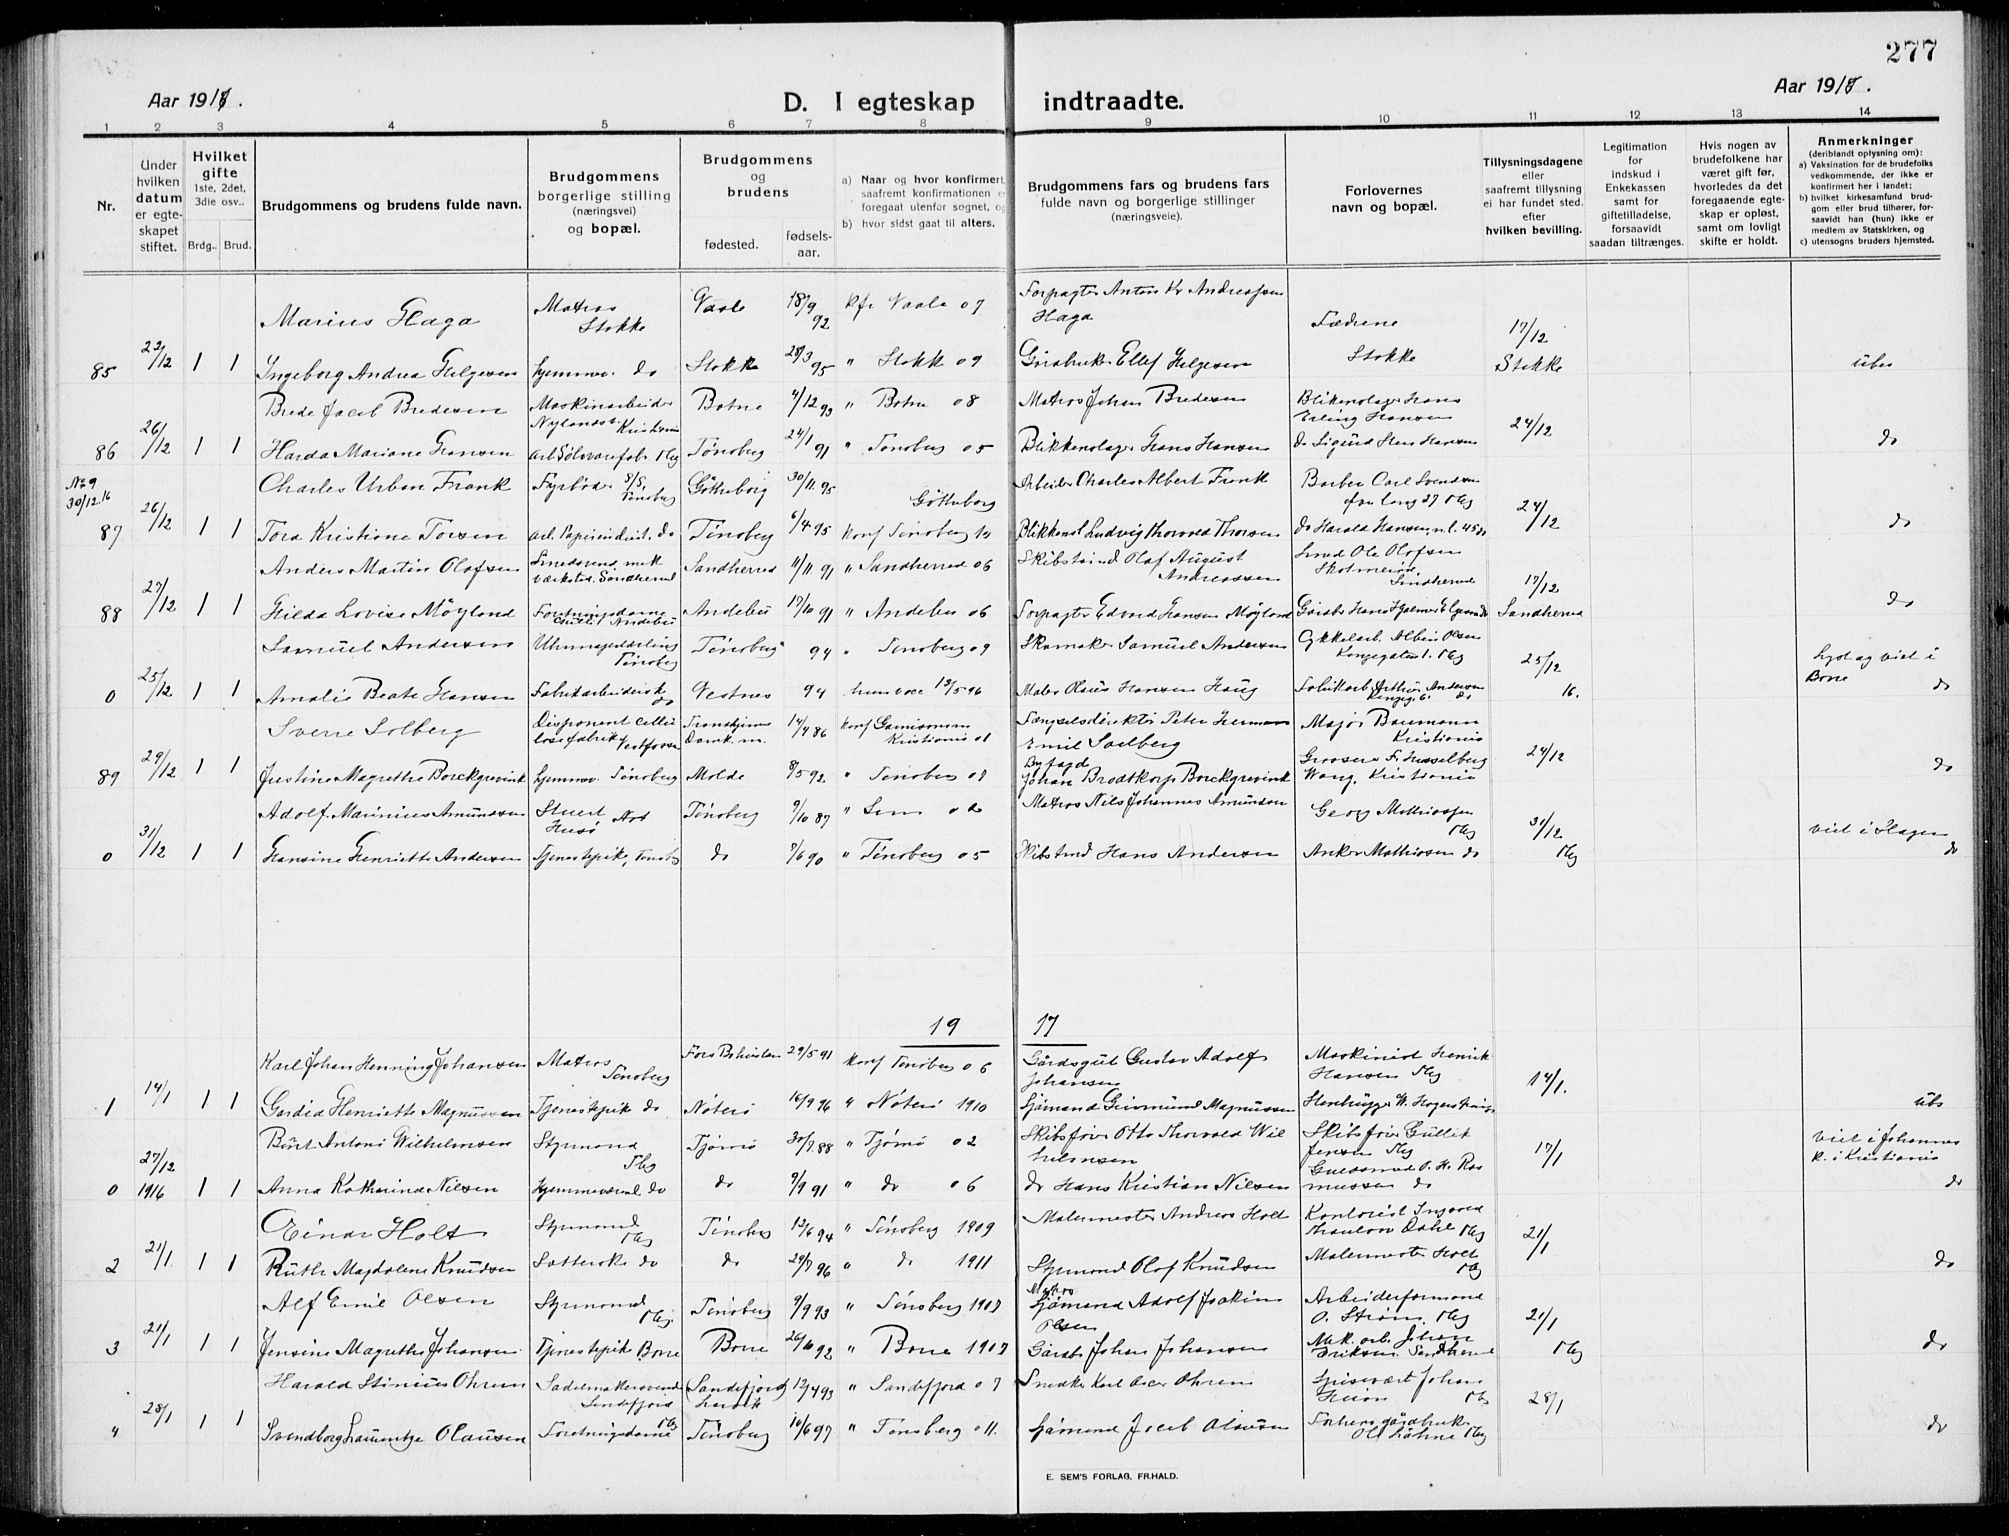 277
Aar 1917.
D. I egteskap indtraadte.
Aar 1917.
1 2 3 4 5 6 7 8 9 10 11 12 13 14
Nr.
Under hvilken datum er egteskapet stiftet.
Hvilket gifte 1ste, 2det, 3die osv..
Brdg.. Brud.
Brudgommens og brudens fulde navn.
Brudgommens borgerlige stilling (næringsvei) og bopæl.
Brudgommens og brudens
fødested.
fødselsaar.
a) Naar og hvor konfirmert,
saafremt konfirmationen
foregaat utenfor sognet,
b) hvor sidst gaat til alters.
Brudgommens fars og brudens fars
fulde navn og borgerlige stillinger
(næringsveie).
Forlovernes
navn og bopæl.
Tillysningsdagene
eller
saafremt tillysning
ei har fundet sted,
efter
hvilken bevilling.
Legitimation
for
indskud i
Enkekassen
samt for
giftetilladelse,
forsaavidt
saadan tiltrænges.
Hvis nogen av
brudefolkene har
været gift før,
hvorledes da det
foregaaende egte-
skap er opløst,
samt om lovligt
skifte er holdt.
Anmerkninger
(deriblandt oplysning om):
a) Vaksination for de brudefolks
vedkommende, der ikke er
konfirmert her i landet;
b) hvilket kirkesamfund brud-
gom eller brud tilhører, for-
saavidt han (hun) ikke er
medlem av Statskirken, og
c) utensogns bruders hjemsted.
Marius Haga Matros Stokke Vaale 18/9 92 kfr Vaale 07 Forpagter Anton Kr Andreassen Haga Fædrene Stokke 17/12 Stokke
85 23/12 1 1 Ingeborg Andrea Helgesen hjemmev. do Stokke 28/3 95 " Stokk 09 Gårdbruker Ellef Helgesen ubs
Brede Jacob Bredesen Maskinarbeider Nylandsv. Kristiania Botne 4/12 93 " Botne 08 Matros Johan Bredesen Blikkenslager Hans Erling Hansen 24/12
86 26/12 1 1 Harda Mariane Hansen arb. Sølvvarefab. Tbg Tönsberg 24/1 91 " Tönsberg 05 Blikkenslager Hans Hansen do Sigurd Hansen do
No 9 30/12.16
Charles Urban Frank Fyrbøder S/S. Tönsberg Götheborg 30/11 95 Götheborg Arbeider Charles Albert Frank Barber Carl Svendsen 27 Tbg 24/12
87 26/12 1 1 Tora Kristiane Torsen arb. Papirindust. do Tönsberg 6/4 95 konf Tönsberg 10 Blikkensl Ludvig Thorvald Thorsen do Harald Hansen n.l. 45 do do
Anders Martin Olafsen Smedsvend mek værksted. Sandherred Sandherred 11/11 91 " Sandherred 06 Skibstømd Olaf August Andreassen Smed Ole Olafsen Sandherred 17/12 Sandherred
88 27/12 1 1 Hilda Lovise Møyland Forretningsdame Andebu Andebu 17/10 91 " Andebu 06 Forpagter Edvard Hansen Møyland Gårdbr Hans Hjalmar do
Samuel Andersen Uhrmagerlærling Tönsberg Tönsberg 94 " Tönsberg 09 Skomaker Samuel Andersen Cykkelarb. Albin Olsen Kongegaten 1. Tbg 25/12 16.
0 25/12 1 1 Amalie Beate Hansen Fabrikarbeiderske do Vestnes 94 13/5 96 Maler Olaus Hansen Haug Fabrikarb. Arthur Andersen do Lyst og viet i Borre do
Sverre Solberg Disponent Cellulosefabrik Vestfossen Tronhjem Domk. m. 14/4 86 konf Garnisonens Kristiania 01 Fængselsdirektör Peter Herman Emil Soelberg Major Baumann Kristiania 24/12
89 29/12 1 1 Justine Magrethe Borchgrevink hjemmev. Tönsberg Molde 8/5 92 " Tönsberg 08 Byfogd Johan Brodtkorp Borchgrevink Grosserer Fr. Hesselberg Wang. Kristiania do
Adolf Marinius Amundsen Stuert Husø Tönsberg 9/10 87 " Sem 02 Matros Nils Johannes Amundsen Georg Mathiassen Tbg 31/12 Tbg
0 31/12 1 1 Hansine Henriette Andersen Tjenestepike, Tönsberg do 7/6 90 " Tönsberg 05 Skibstmd Hans Andersen Anker Mathisen do viet i Slagen do
19 17
Karl Johan Henning Johansen Matros Tönsberg 29/5 91 konf Tönsberg 06 Gårdsgut Gustav Adolf Johansen Maskinist Henrik Hansen Tbg 14/1.
1 14/1 1 1 Gerdia Henriette Magnussen Tjenestepike do Nøterø 16/9 96 " Nøterø 1910 Sjömand Guvmund Magnussen Stenhugger W. ubs
Burt Antoni Wilhelmsen Styrmand Tbg Tjømø 30/7 88 " Tjømø 02 Skibsfører Otto Thorvald Wilhelmsen Skibsfører Gullik Jensen Tbg 17/1
0 27/12 1916 1 1 Anna Katharina Nilsen Hjemmeværende do do 9/9 91 " do 06 do Hans Kristian Nilsen O. H. Rasmussen do viet i Johannes k. i Kristiania do
Einar Holt Styrmand Tbg Tönsberg 12/6 94 " Tönsberg 1909 Malermester Andreas Holt Kontorist Ingvald Dahl Tbg 21/1
2 21/1 1 1 Ruth Magdalene Knudsen Sætterske do do 29/7 96 " do 1911 Styrmand Olaf Knudsen Malermester Holt Tbg do
Alf Emil Olsen Styrmand Tbg. Tönsberg 9/9 93 " Tönsberg 1907 Matros Sjømand Adolf Joakim Olsen Arbeiderformand O. Strøm. Tbg 21/1 Tbg
3 21/1 1 1 Jensine Magrethe Johansen Tjenestepike Borre Borre 26/6 92 " Borre 1907 Gårdb Johan Johansen Mek. arb. Johan Eriksen Sandherred do
Harald Stinius Ohren Sadelmakersvend Sandefjord Sandefjord Larvik 12/4 93 " Sandefjord 07 Snedker Karl Oscar Ohren Spisevært Johan Tbg 28/1
4 28/1 1 1 Svendborg Laurentze Olausen Forretningsdame Tbg Tönsberg 10/6 97 " Tönsberg 011. Sjömand Jacob Olausen Forhenv gårdbruker Tbg do
E. SEM'S FORLAG, FR.HALD.